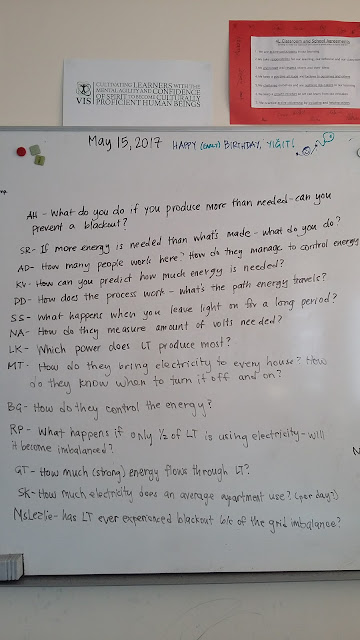 4L Classroom and School Agreements
CULTIVATING LEARNERS WITH THE
MENTAL AGILITY AND CONFIDENCE
OF SPIRIT TO BECOME CULTURALLY
PROFICIENT HUMAN BEINGS
VIS
May 15, 2017 HAPPY (EARLY) BIRTHDAY, YIGIT!
AH - What do you do if you produce more than needed - can you
prevent a blackout?
SR - If more energy is needed than what's made - what do you do?
AD - How many people work here? How do they manage to control energy
KV - How can you predict how much energy is needed?
DD - How does the process work - what's the path energy travels?
SS - What happens when you leave light on for a long period?
NA - How do they measure amount of volts needed?
LK - Which power does LT produce most?
MT - How do they bring electricity to every house? How
do they know when to turn it off and on?
BG - How do they control the energy?
RP - What happens if only 1/2 of LT is using electricity - will
it become imbalanced?
GT - How much (strong) energy flows through LT?
SK - How much electricity does an average apartment use? (per day?)
MsLezlie - has LT ever experienced blackout b/c of the grid imbalance?